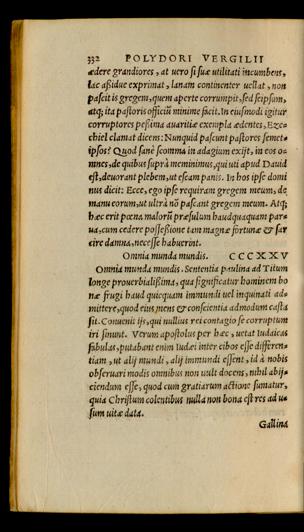 332 POLYDORI VERGILII
ædere grandiores, at uero si suæ utilitati incumbens,
lac assidue exprimat, lanam continenter uellat, non
pascit is gregem, quem aperte corrumpit, sed seipsum,
atq; ita pastoris officiũ minime facit. In eiusmodi igitur
corruptores pessima auaritiæ exempla ædentes, Eze-
chiel clamat dicens: Nunquid pascunt pastores semet-
ipsos? Quod sanè scomma in adagium exijt, in eos o-
mnes, de quibus suprà meminimus, qui uti apud Dauid
est, deuorant plebem, ut escam panis. In hos ipse domi
nus dicit: Ecce, ego ipse requiram gregem meum, de
manu eorum, ut ultrà nõ pascant gregem meum. Atq;
hæc erit pœna malorũ præsulum haudquaquam par-
ua, cum cedere possessione tam magnæ fortunæ & sar
cire damna, necesse habuerint.
Omnia munda mundis. CCCXXV
Omnia munda mundis. Sententia paulina ad Titum
longe prouerbialissima, qua significatur hominem bo
næ frugi haud quicquam immundi uel inquinati ad-
mittere, quod eius mens & conscientia admodum casta
sit. Conuenit ijs, qui nullius rei contagio se corruptum
iri sinunt. Verum apostolus per hæc, uetat Iudaicas
fabulas, putabant enim Iudæi inter cibos esse differen-
tiam, ut alij mundi, alij immundi essent, id à nobis
obseruari modis omnibus non uult docens, nihil abij-
ciendum esse, quod cum gratiarum actione sumatur,
quia Christum colentibus nulla non bona est res ad u-
sum uitæ data.
Gallina